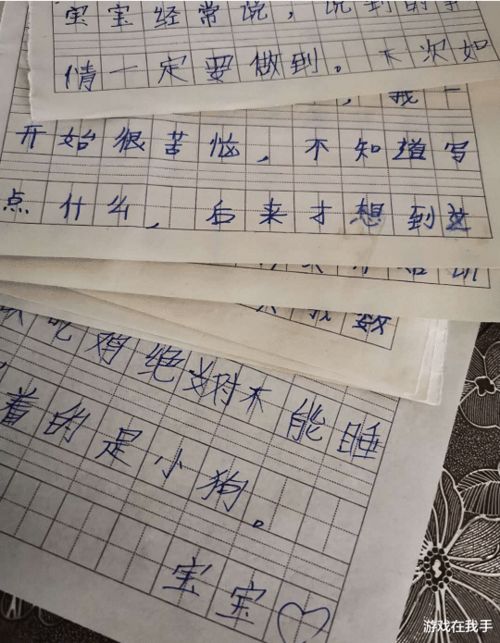 宝宝经常说，说到的事
情一定要做到。木次如
，我一
开始很苦恼，不知道写
点什么，后来才想到这
数
吃鸡绝对不能睡
着的是小狗。
宝宝♡
游戏在我手